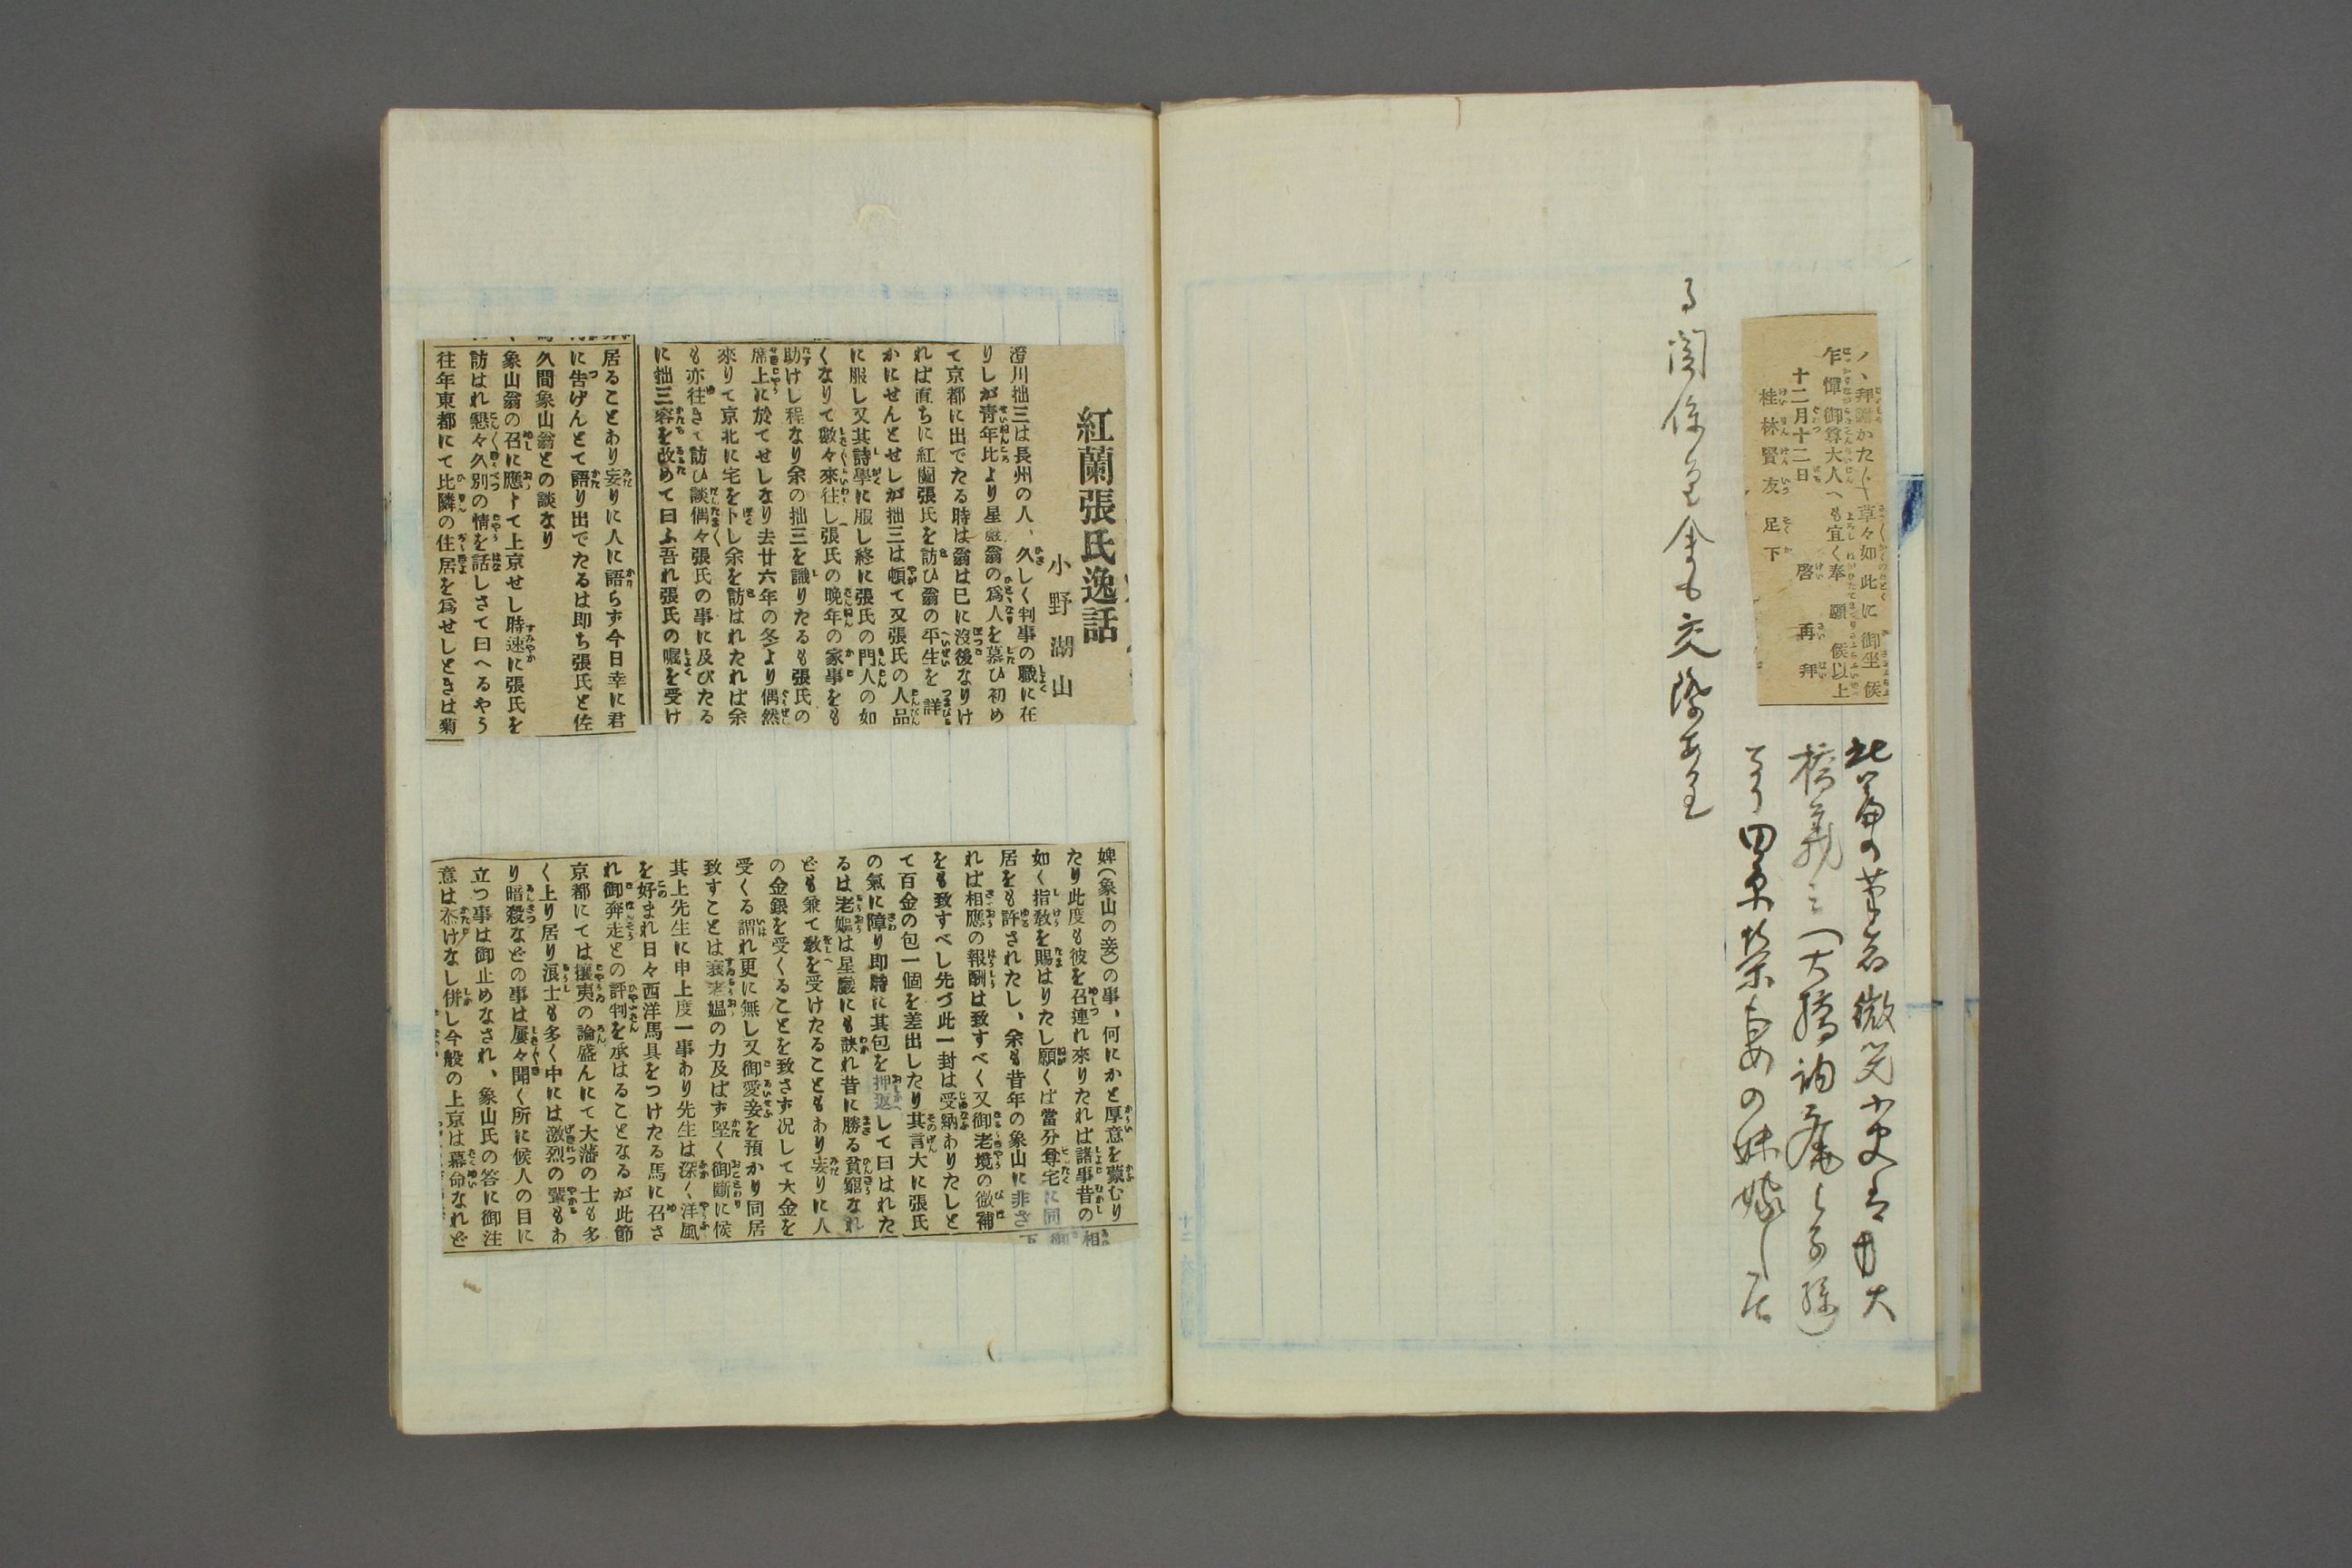 拜謝かた〲草々如此に御坐候
乍憚御尊大人へも宜く奉願候以上
十二月十二日 啓再拜
桂林賢友足下
此篇の筆者微笑小史は大
橋義三(大橋訥庵の子孫)
にて 田 榮 妻の妹嫁し居
る関係より余も交際あり
紅蘭張氏逸話
小野湖山
澄川拙三は長州の人、久しく判事の職に在
りしが青年比より星巖翁の爲人を慕ひ初め
て京都に出でたる時は翁は已に沒後なりけ
れば直ちに紅蘭張氏を訪ひ翁の平生を詳
かにせんとせしが拙三は頓て又張氏の人品
に服し又其詩學に服し終に張氏の門人の如
くなりて數々來往し張氏の晩年の家事をも
助けし程なり余の拙三を識りたるも張氏の
席上に於てせしなり去廿六年の冬より偶然
來りて京北に宅を卜し余を訪はれたれば余
も亦往きて訪ひ談偶々張氏の事に及びたる
に拙三容を改めて曰ふ吾れ張氏の囑を受け
居ることあり妄りに人に語らず今日幸に君
に告げんとて語り出でたるは即ち張氏と佐
久間象山翁との談なり
象山翁の召に應じて上京せし時速に張氏を
訪はれ懇々久別の情を話しさて曰へるやう
往年東都にて比隣の住居を爲せしときは菊
婢(象山の妾)の事、何にかと厚意を蒙むり
たり此度も彼を召連れ來りたれば諸事昔の
如く指敎を賜はりたし願くば當分尊宅に同
居をも許されたし、余も昔年の象山に非ざ
れば相應の報酬は致すべく又御老境の微補
をも致すべし先づ此一封は受納ありたしと
て百金の包一個を差出したり其言大に張氏
の氣に障り即時に其包を押返して曰はれた
るは老媼は星巖にも訣れ昔に勝る貧窮なれ
ども兼て敎を受けたることもあり妄りに人
の金銀を受くることを致さず況して大金を
受くる謂れ更に無し又御愛妾を預かり同居
致すことは衰老媼の力及ばず堅く御斷に候
其上先生に申上度一事あり先生は深く洋風
を好まれ日々西洋馬具をつけたる馬に召さ
れ御奔走との評判を承はることなるが此節
京都にては攘夷の論盛んにて大藩の士も多
く上り居り浪士も多く中には激烈の輩もあ
り暗殺などの事は屢々聞く所に候人の目に
立つ事は御止めなされ、象山氏の答に御注
意は忝けなし併し今般の上京は幕命なれど